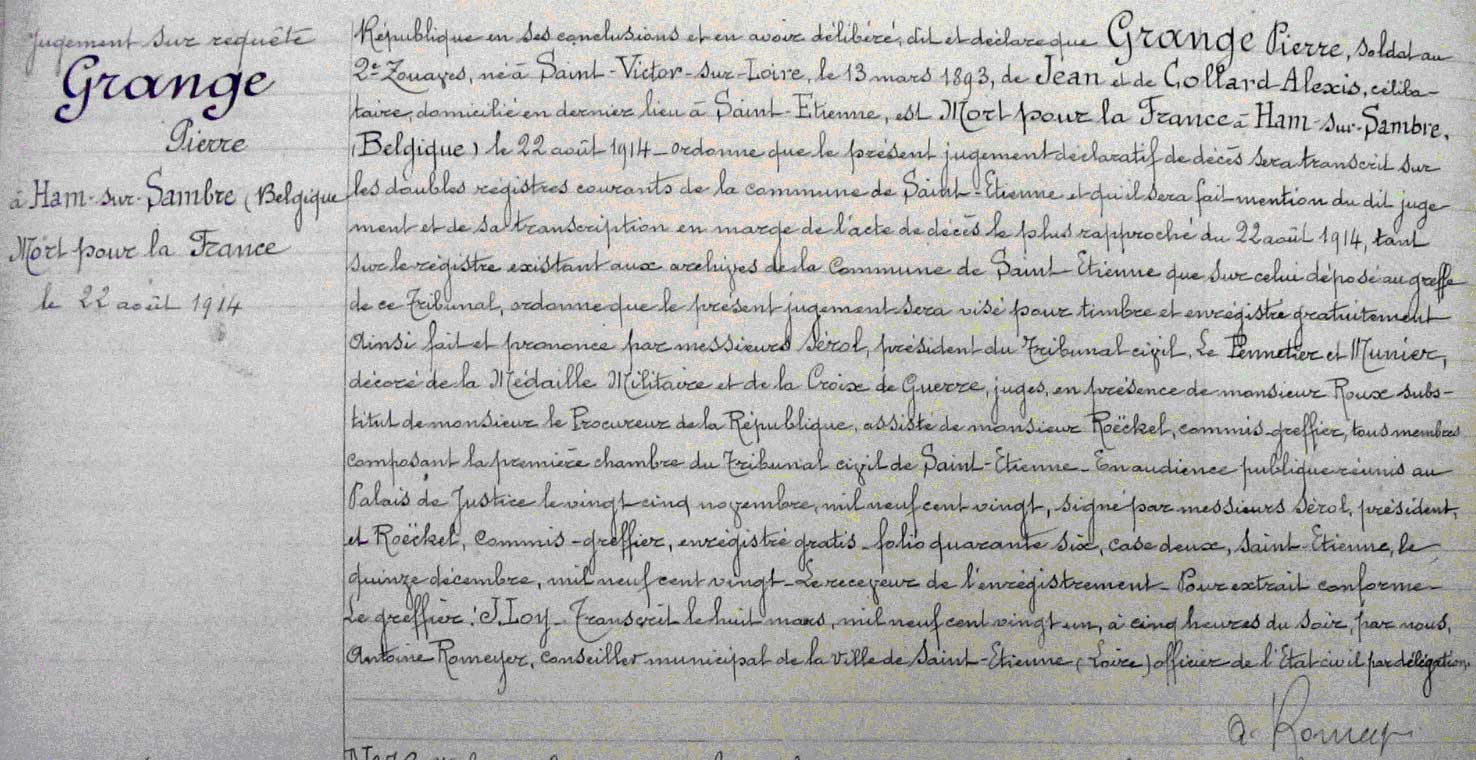 Jugement sur requête
Grange
Pierre
à Ham-sur-Sambre (Belgique
Mort pour la France
le 22 août 1914
République en ses conclusions et en avoir délibéré, dit et déclare que Grange Pierre, soldat au
2e Zouaves, né à Saint-Victor-sur-Loire, le 13 mars 1893, de Jean et de Collard Alexis, céliba-
taire, domicilié en dernier lieu à Saint-Etienne, est Mort pour la France à Ham-sur-Sambre,
(Belgique) le 22 août 1914 - ordonne que le présent jugement déclaratif de décès sera transcrit sur
les doubles régistres courants de la commune de Saint-Etienne et qu'il sera fait mention du dit juge-
ment et de sa transcription en marge de l'acte de décès le plus rapproché du 22 août 1914, tant
sur le régistre existant aux archives de la Commune de Saint-Etienne que sur celui déposé au greffe
de ce Tribunal, ordonne que le présent jugement sera visé pour timbre et enrégistré gratuitement
Ainsi fait et prononcé par messieurs Sérol, président du Tribunal civil, Le Pennetier et Munier,
décoré de la Médaille Militaire et de la Croix de Guerre, juges, en présence de monsieur Roux subs-
titut de monsieur le Procureur de la République, assisté de monsieur Roëckel, commis-greffier, tous membres
composant la première chambre du Tribunal civil de Saint-Etienne - En audience publique réunis au
Palais de Justice le vingt cinq novembre, mil neuf cent vingt, signé par messieurs Sérol, président,
et Roëckel, commis-greffier, enrégistré gratis folio quarante six, case deux, Saint-Etienne, le
quinze décembre, mil neuf cent vingt - Le receveur de l'enrégistrement - Pour extrait conforme -
Le greffier : J. Loy - Transcrit le huit mars, mil neuf cent vingt un, à cinq heures du soir, par nous,
Antoine Romeyer, conseiller municipal de la ville de Saint-Etienne (Loire) officier de l'Etat civil par délégation.
A. Romeyer